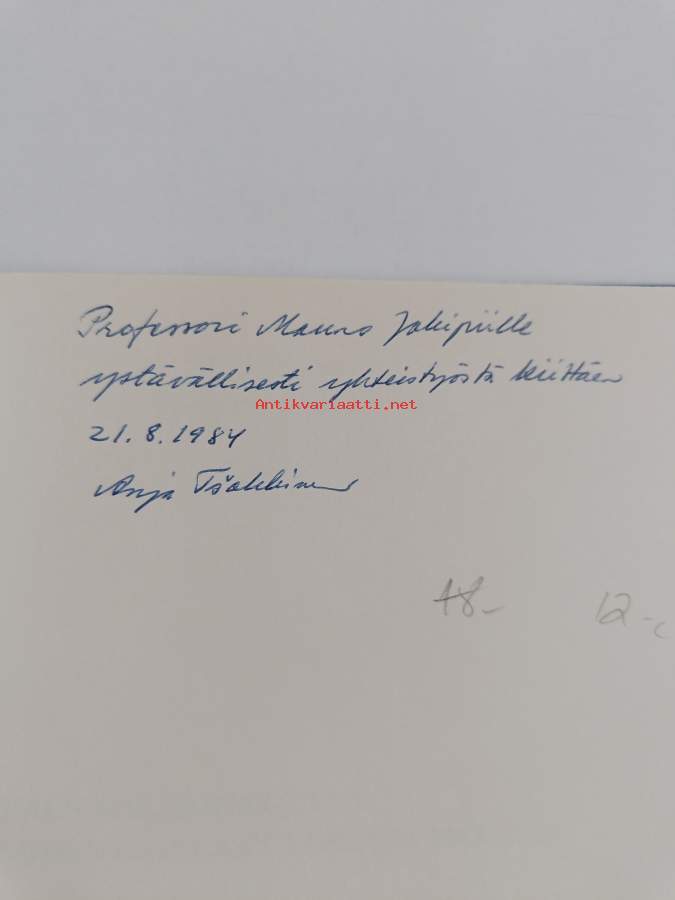 Professori Mauno Jokipiille
ystävällisesti yhteistyöstä kiittäen
Antikvariaatti.net
21.8.1984
Anja Tšokkinen
18- 12-